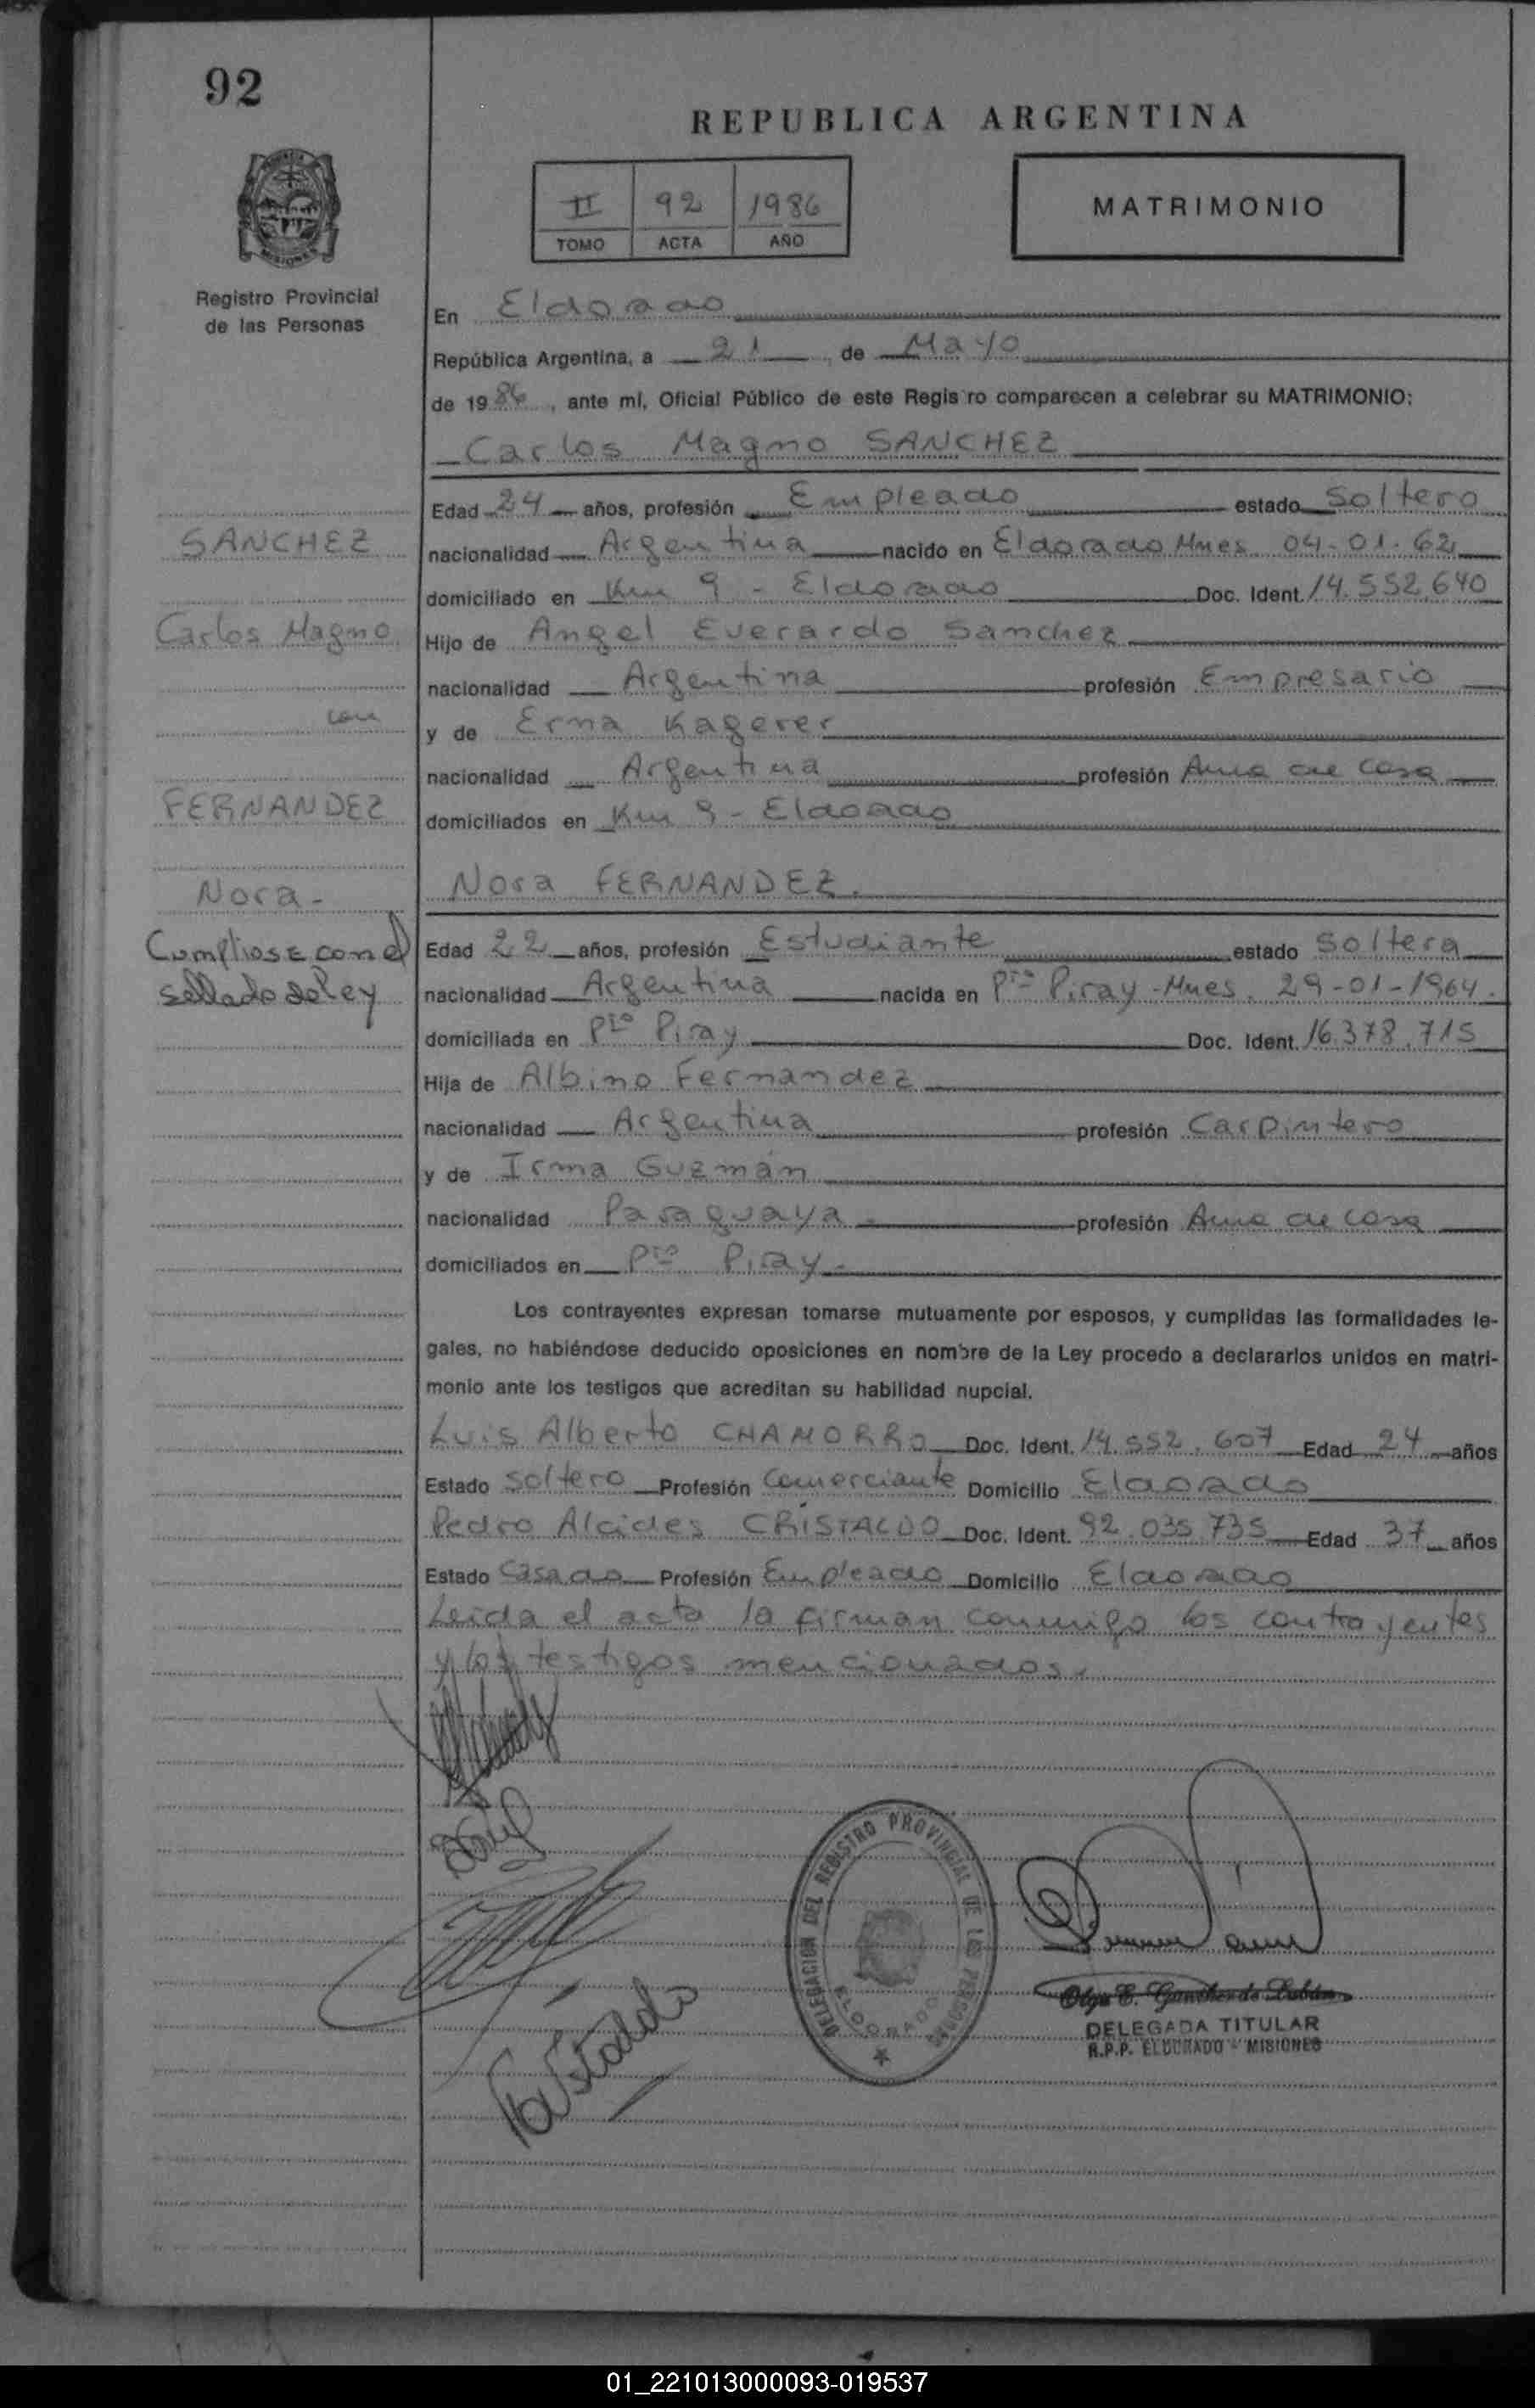 92
REPUBLICA ARGENTINA
II 92 1986
TOMO ACTA AÑO
MATRIMONIO
MISIONES
Registro Provincial
de las Personas
En Eldorado
República Argentina, a 21 de Mayo
de 1986, ante mí, Oficial Público de este Registro comparecen a celebrar su MATRIMONIO:
Carlos Magno SANCHEZ
Edad 24 años, profesión Empleado estado Soltero
SANCHEZ
nacionalidad Argentina nacido en Eldorado Mnes. 04-01-62
domiciliado en Km 9 - Eldorado Doc. Ident. 14.552.640
Carlos Magno
Hijo de Angel Everardo Sanchez
nacionalidad Argentina profesión Empresario
con
y de Erna Kagerer
nacionalidad Argentina profesión Ama de casa
FERNANDEZ
domiciliados en Km 9 - Eldorado
Nora -
Nora FERNANDEZ.
Cumpliose con el
Edad 22 años, profesión Estudiante estado Soltera
sellado de Ley
nacionalidad Argentina nacida en Pto Piray - Mnes. 29-01-1964.
domiciliada en Pto Piray Doc. Ident. 16.378.715
Hija de Albino Fernandez
nacionalidad Argentina profesión Carpintero
y de Irma Guzmán
nacionalidad Paraguaya. profesión Ama de casa
domiciliados en Pto Piray.
Los contrayentes expresan tomarse mutuamente por esposos, y cumplidas las formalidades le-
gales, no habiéndose deducido oposiciones en nombre de la Ley procedo a declararlos unidos en matri-
monio ante los testigos que acreditan su habilidad nupcial.
Luis Alberto CHAMORRO Doc. Ident. 14.552.607 Edad 24 años
Estado Soltero Profesión Comerciante Domicilio Eldorado
Pedro Alcides CRISTALDO Doc. Ident. 92.035.735 Edad 37 años
Estado Casado Profesión Empleado Domicilio Eldorado
Leida el acta la firman conmigo los contrayentes
y los testigos mencionados.
DELEGACION DEL REGISTRO PROVINCIAL DE LAS PERSONAS
ELDORADO
Cristaldo
Olga E.
DELEGADA TITULAR
R.P.P. ELDORADO - MISIONES
01_221013000093-019537